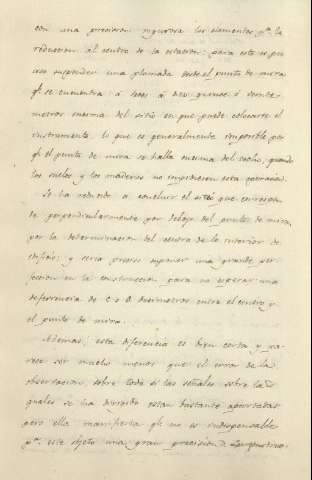 con una precision rigurosa los elementos pa. la
reduccion al centro de la estacion: para esto es pre
ciso suspender una plomada desde el punto de mira
qe. se encuentra á diez á doz quince ó veinte
metros encima del sitio en que puede colocarse el
instrumento, lo que es generalmente imposible por
qe. el punto de mira se halla encima del techo, quando
los suelos y las maderas no impidiesen esta operacion.
Se ha reducido a concluir el sitio que corresponde
de perpendicularmente por debajo del punto de mira,
por la determinacion del centro de lo interior de
edificio; y seria preciso suponer una grande per
feccion en la construccion para no esperar una
deferencia de 1 ó 2 decimetros entre el centro y
el punto de mira.
Ademas, esta diferencia es bien corta y pa-
rece ser mucho menor que el error de la
observacion sobre todo si las señales sobre las
quales se ha dirigido estan bastante apartadas
pero ella manifiesta qe. no es indispensable
pa. este objeto una gran precision